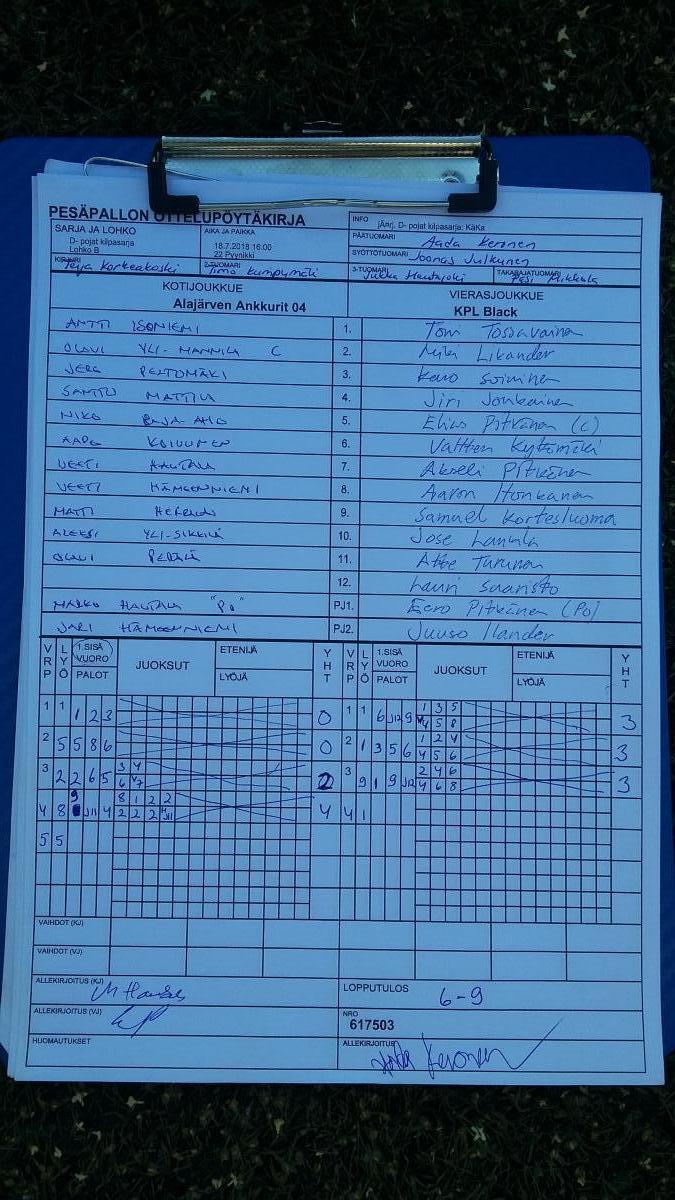 PESÄPALLON OTTELUPÖYTÄKIRJA
INFO
jÄnrj, D- pojat kilpasarja: KäKa
SARJA JA LOHKO
D- pojat kilpasarja
Lohko B
AIKA JA PAIKKA
18.7.2018 16:00
22 Pyynikki
PÄÄTUOMARI Aada Keronen
SYÖTTÖTUOMARI Joonas Julkunen
KIRJURI Teija Korkeakoski
2-TUOMARI Timo Kumpumäki
3-TUOMARI Jukka Hautajoki
TAKARAJATUOMARI Pasi Mikkola
KOTIJOUKKUE
Alajärven Ankkurit 04
VIERASJOUKKUE
KPL Black
ANTTI ISONIEMI 1. Tomi Tossavainen
OLAVI YLI-MANNILA C 2. Likander
JERE PELTOMÄKI 3. Soininen
SANTTU MATTILA 4. Jiri Jonkainen
NIKO 5. Elias Pitkänen (C)
AAPO KOIVUNEN 6. Kytömäki
VEETI HAUTALA 7. Akseli Pitkänen
VEETI HÄMEENNIEMI 8. Aaron Honkanen
MATTI 9. Samuel Kortesluoma
ALEKSI YLI-SIKKILÄ 10. Jose
OLAVI 11. Atte Turunen
12. Lauri Saaristo
MARKO HAUTALA "Po" PJ1. Eero Pitkänen (Po)
JARI HÄMEENNIEMI PJ2. Juuso Ilander
VRP LYÖ 1.SISÄ VUORO PALOT JUOKSUT ETENIJÄ LYÖJÄ YHT VRP LYÖ 1.SISÄ VUORO PALOT JUOKSUT ETENIJÄ LYÖJÄ YHT
1 1 1 2 3 0 1 1 6 J12 9 1 3 5 3
4 5 8
2 5 5 8 6 0 2 1 3 5 6 1 2 4 3
4 5 6
3 2 2 6 5 3 4 2 3 9 1 9 J12 2 4 6 3
6 V7 4 6 8
4 8 9 J11 4 8 1 2 2 4 4 1
2 2 2
5 5
VAIHDOT (KJ)
VAIHDOT (VJ)
ALLEKIRJOITUS (KJ)
LOPPUTULOS 6-9
ALLEKIRJOITUS (VJ)
NRO
617503
HUOMAUTUKSET
ALLEKIRJOITUS Aada Keronen